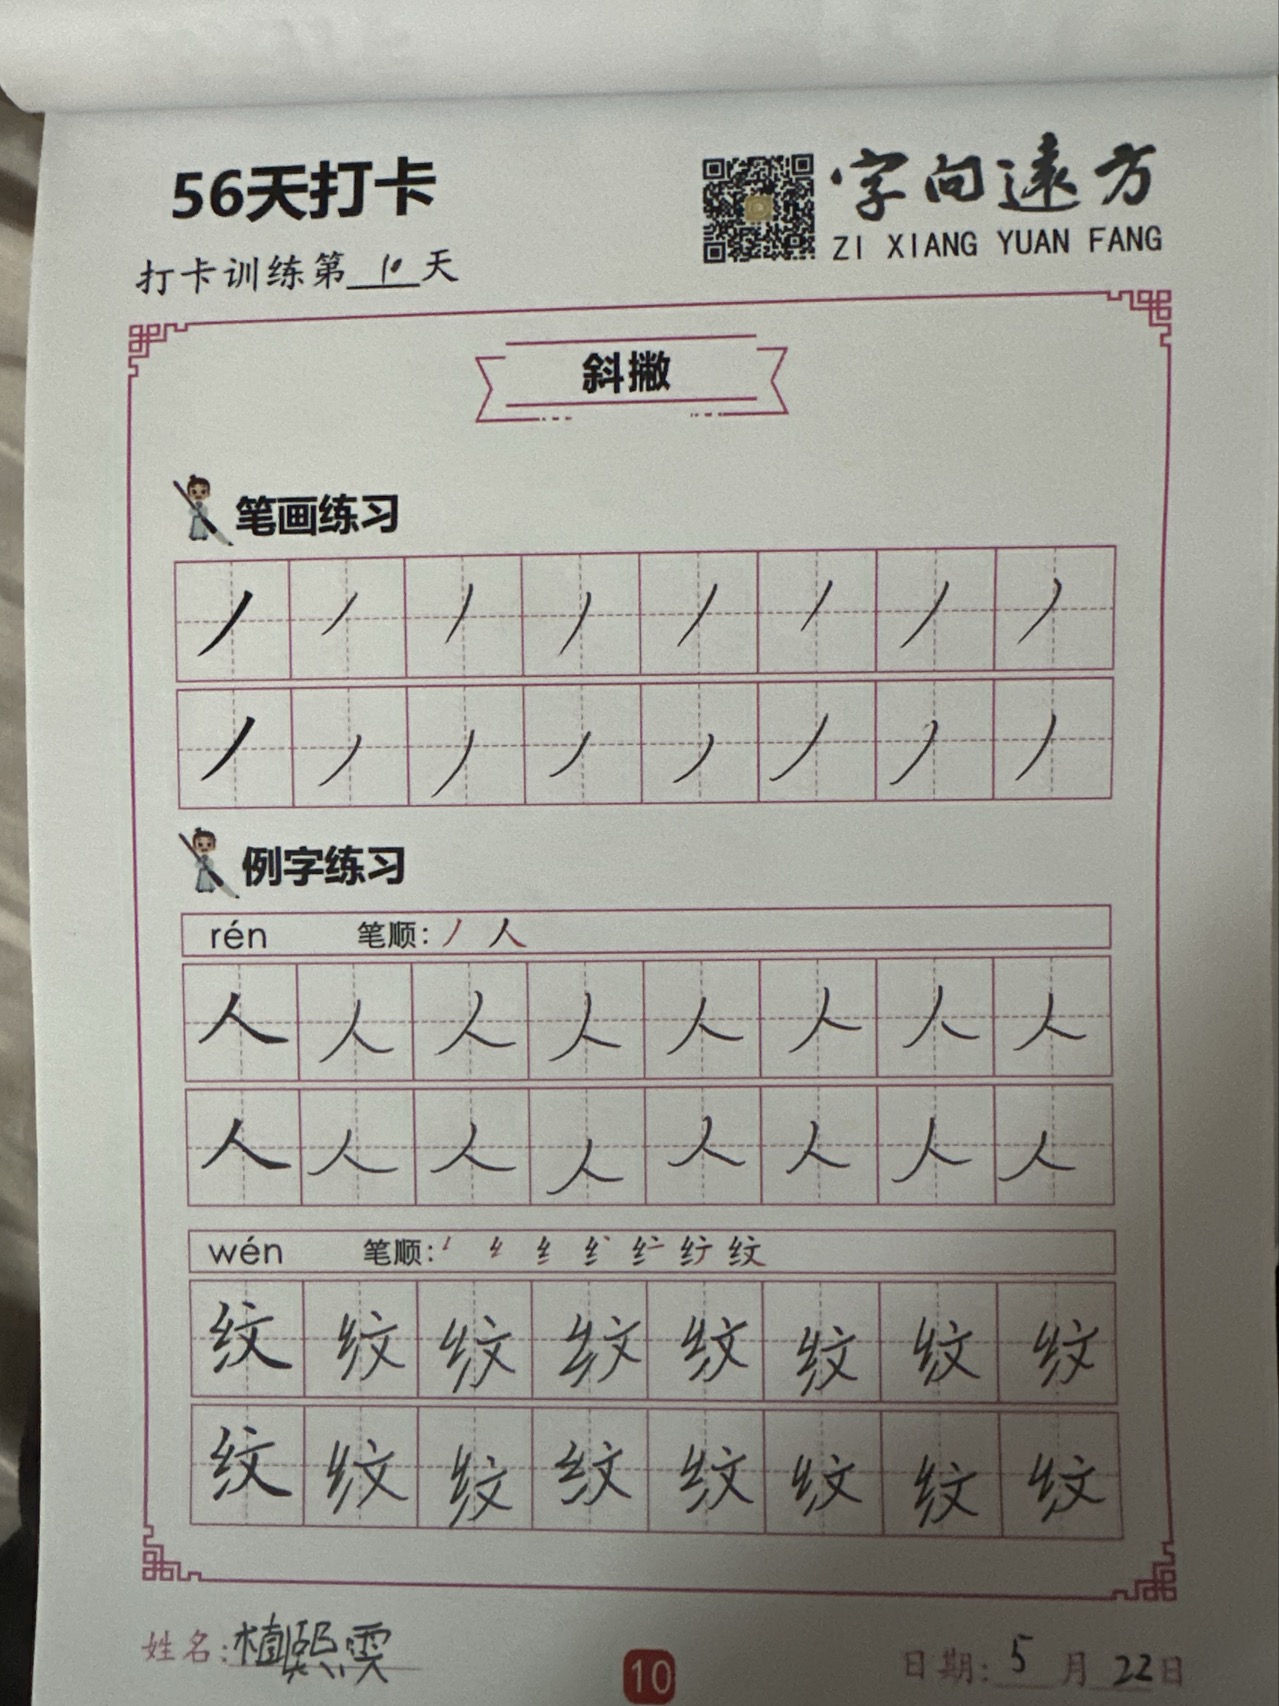 56天打卡
字向遠方
ZI XIANG YUAN FANG
打卡训练第10天
斜撇
笔画练习
丿丿丿丿丿丿丿丿
丿丿丿丿丿丿丿丿
例字练习
rén 笔顺：丿 人
人人人人人人人人
人人人人人人人人
wén 笔顺：
纹纹纹纹纹纹纹纹
纹纹纹纹纹纹纹纹
姓名：植熙雯
10
日期：5月22日